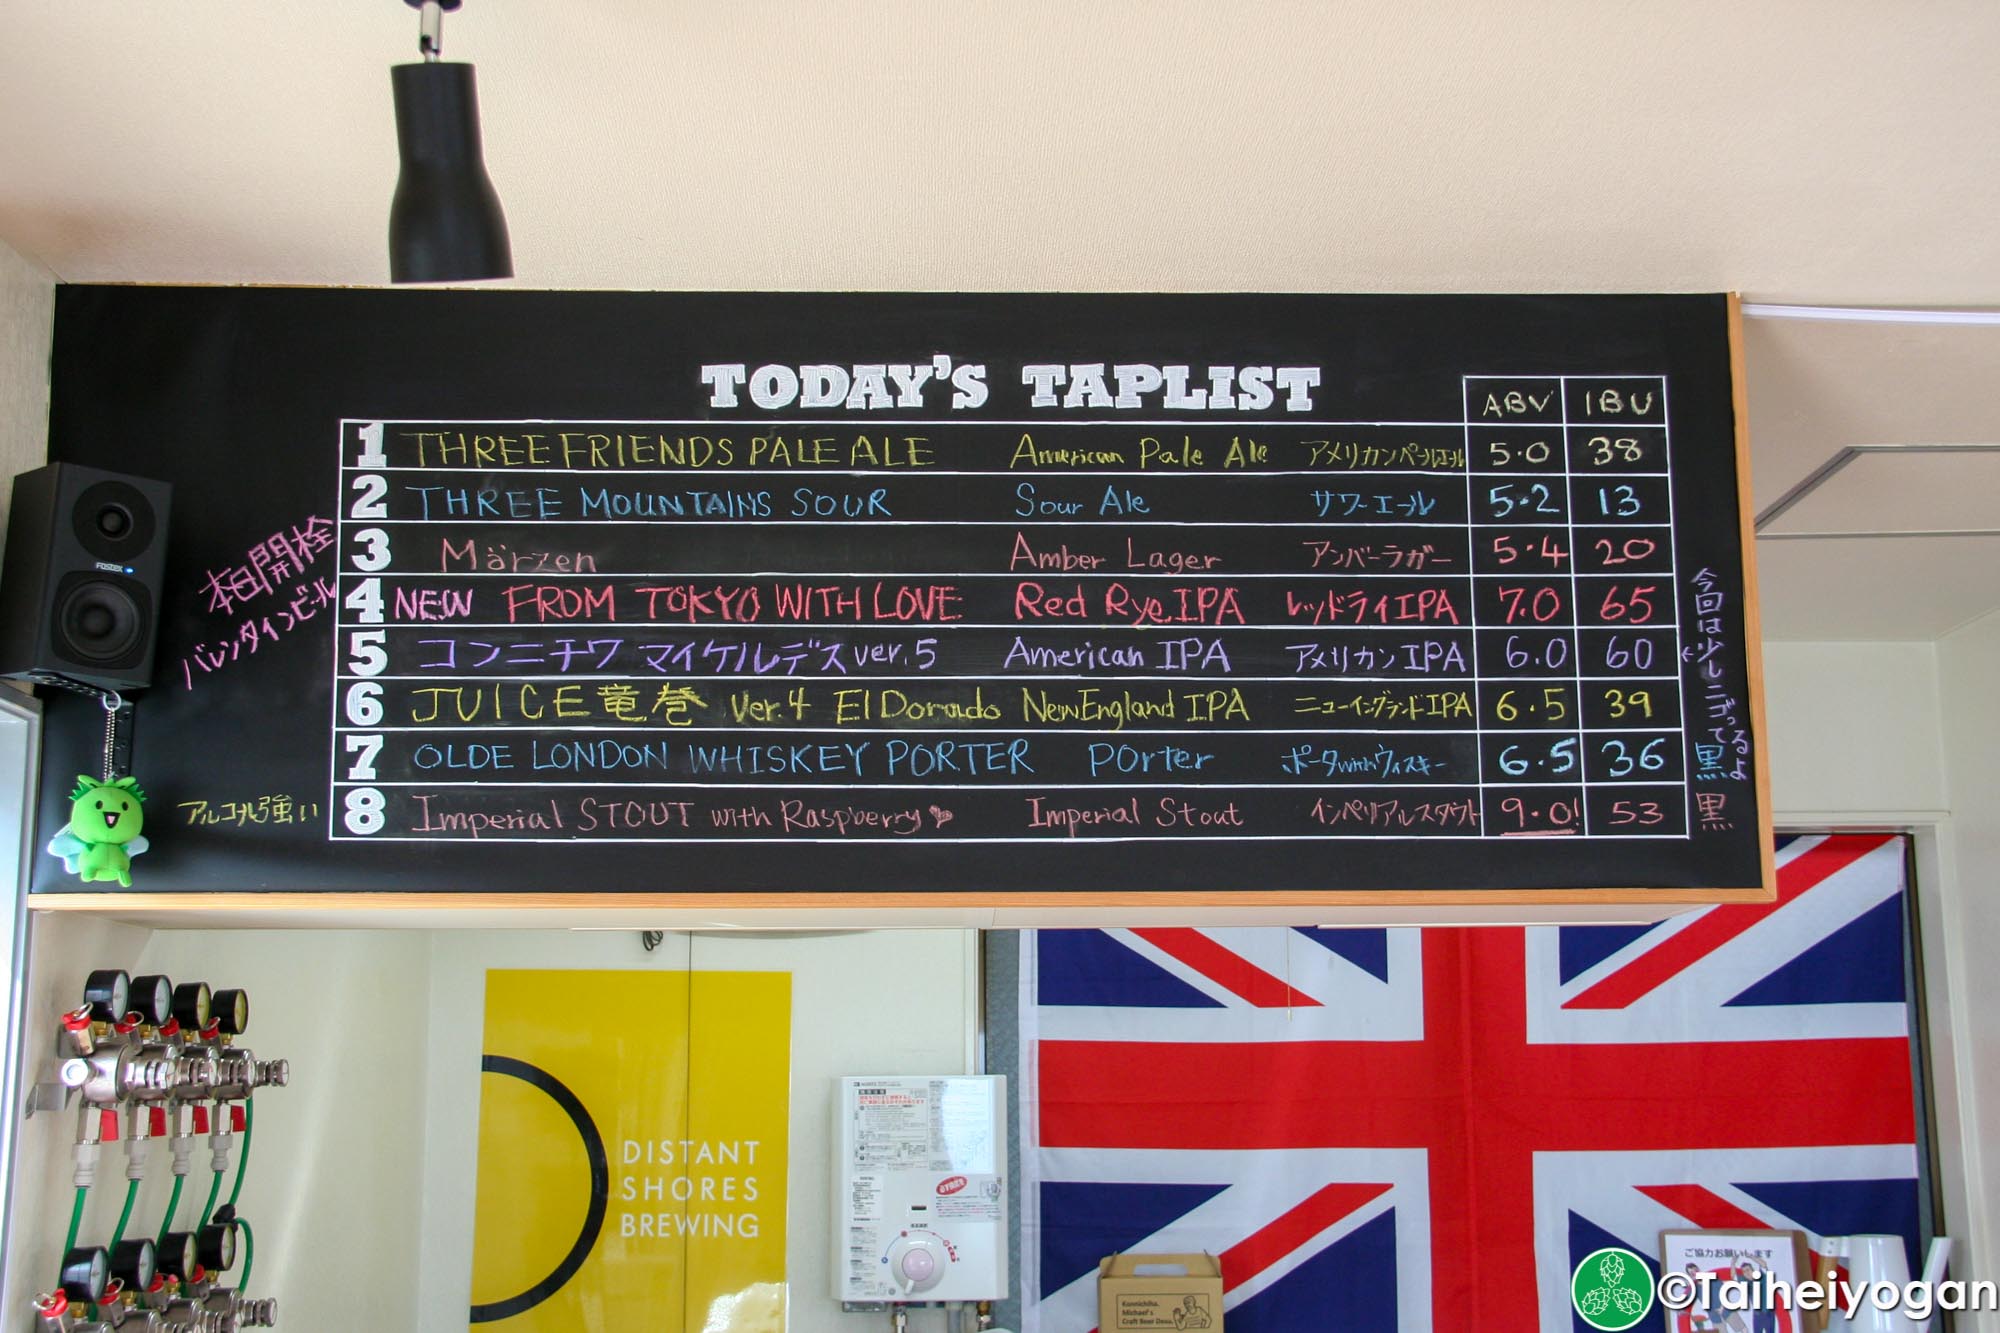 TODAY'S TAPLIST
ABV IBU
1 THREE FRIENDS PALE ALE American Pale Ale アメリカンペールエール 5.0 38
2 THREE MOUNTAINS SOUR Sour Ale サワーエール 5.2 13
3 Märzen Amber Lager アンバーラガー 5.4 20
4 NEW FROM TOKYO WITH LOVE Red Rye IPA レッドライIPA 7.0 65
5 コンニチワ マイケルデス ver.5 American IPA アメリカンIPA 6.0 60
6 JUICE竜巻 Ver.4 El Dorado New England IPA ニューイングランドIPA 6.5 39
7 OLDE LONDON WHISKEY PORTER Porter ポーターwithウィスキー 6.5 36
8 Imperial STOUT with Raspberry Imperial Stout インペリアルスタウト 9.0! 53
本日開栓
バレンタインビール
アルコール強い
←今回は少しニゴってるよ
黒
黒
FOSTEX
DISTANT
SHORES
BREWING
Konnichiha.
Michael's
Craft Beer Desu.
ご協力お願いします
©Taiheiyogan